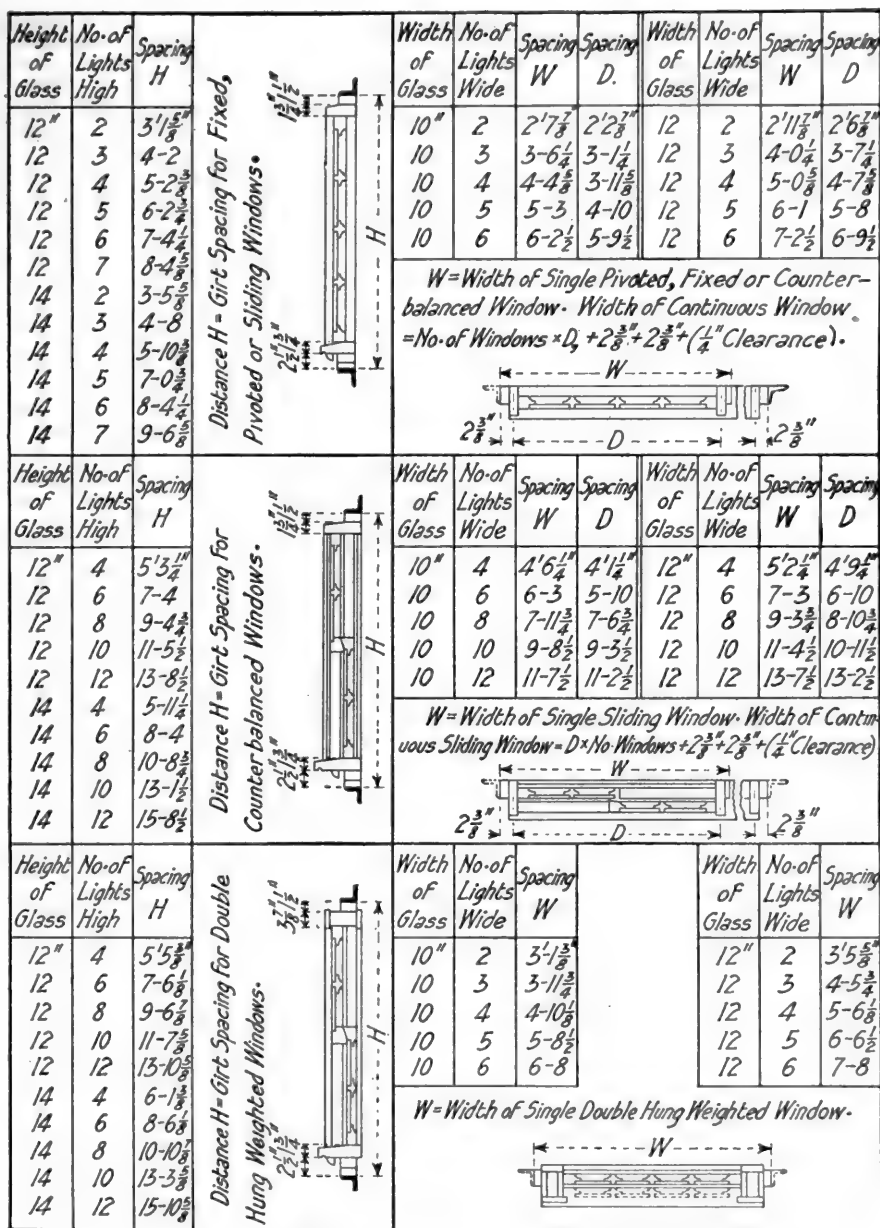 Height of Glass | No. of Lights High | Spacing H
12" | 2 | 3'1 5/8"
12 | 3 | 4-2
12 | 4 | 5-2 3/8
12 | 5 | 6-2 3/4
12 | 6 | 7-4 1/4
12 | 7 | 8-4 5/8
14 | 2 | 3-5 5/8
14 | 3 | 4-8
14 | 4 | 5-10 3/8
14 | 5 | 7-0 3/4
14 | 6 | 8-4 1/4
14 | 7 | 9-6 5/8
Distance H = Girt Spacing for Fixed,
Pivoted or Sliding Windows.
1 3/4" 1/2"
H
2 1/2" 1 3/4"
Width of Glass | No. of Lights Wide | Spacing W | Spacing D. | Width of Glass | No. of Lights Wide | Spacing W | Spacing D
10" | 2 | 2'7 7/8" | 2'2 7/8" | 12 | 2 | 2'11 7/8" | 2'6 7/8"
10 | 3 | 3-6 1/4 | 3-1 1/4 | 12 | 3 | 4-0 1/4 | 3-7 1/4
10 | 4 | 4-4 5/8 | 3-11 5/8 | 12 | 4 | 5-0 5/8 | 4-7 5/8
10 | 5 | 5-3 | 4-10 | 12 | 5 | 6-1 | 5-8
10 | 6 | 6-2 1/2 | 5-9 1/2 | 12 | 6 | 7-2 1/2 | 6-9 1/2
W = Width of Single Pivoted, Fixed or Counter-
balanced Window. Width of Continuous Window
= No. of Windows × D, + 2 3/8" + 2 3/8" + (1/4" Clearance).
W
2 3/8" D 2 3/8"
Height of Glass | No. of Lights High | Spacing H
12" | 4 | 5'3 1/4"
12 | 6 | 7-4
12 | 8 | 9-4 3/4
12 | 10 | 11-5 1/2
12 | 12 | 13-8 1/2
14 | 4 | 5-11 1/4
14 | 6 | 8-4
14 | 8 | 10-8 3/4
14 | 10 | 13-1 1/2
14 | 12 | 15-8 1/2
Distance H = Girt Spacing for
Counterbalanced Windows.
1 3/4" 1/2"
H
2 1/2" 1 3/4"
Width of Glass | No. of Lights Wide | Spacing W | Spacing D | Width of Glass | No. of Lights Wide | Spacing W | Spacing D
10" | 4 | 4'6 1/4" | 4'1 1/4" | 12" | 4 | 5'2 1/4" | 4'9 1/4"
10 | 6 | 6-3 | 5-10 | 12 | 6 | 7-3 | 6-10
10 | 8 | 7-11 3/4 | 7-6 3/4 | 12 | 8 | 9-3 3/4 | 8-10 3/4
10 | 10 | 9-8 1/2 | 9-3 1/2 | 12 | 10 | 11-4 1/2 | 10-11 1/2
10 | 12 | 11-7 1/2 | 11-2 1/2 | 12 | 12 | 13-7 1/2 | 13-2 1/2
W = Width of Single Sliding Window. Width of Contin-
uous Sliding Window = D × No. Windows + 2 3/8" + 2 3/8" + (1/4" Clearance)
W
2 3/8" D 2 3/8"
Height of Glass | No. of Lights High | Spacing H
12" | 4 | 5'5 3/8"
12 | 6 | 7-6 1/8
12 | 8 | 9-6 7/8
12 | 10 | 11-7 5/8
12 | 12 | 13-10 5/8
14 | 4 | 6-1 3/8
14 | 6 | 8-6 1/8
14 | 8 | 10-10 7/8
14 | 10 | 13-3 5/8
14 | 12 | 15-10 5/8
Distance H = Girt Spacing for Double
Hung Weighted Windows.
3 7/8" 1/2"
H
2 1/2" 1 3/4"
Width of Glass | No. of Lights Wide | Spacing W
10" | 2 | 3'-1 3/8"
10 | 3 | 3-11 3/4
10 | 4 | 4-10 1/8
10 | 5 | 5-8 1/2
10 | 6 | 6-8
Width of Glass | No. of Lights Wide | Spacing W
12" | 2 | 3'5 5/8"
12 | 3 | 4-5 3/4
12 | 4 | 5-6 1/8
12 | 5 | 6-6 1/2
12 | 6 | 7-8
W = Width of Single Double Hung Weighted Window.
W